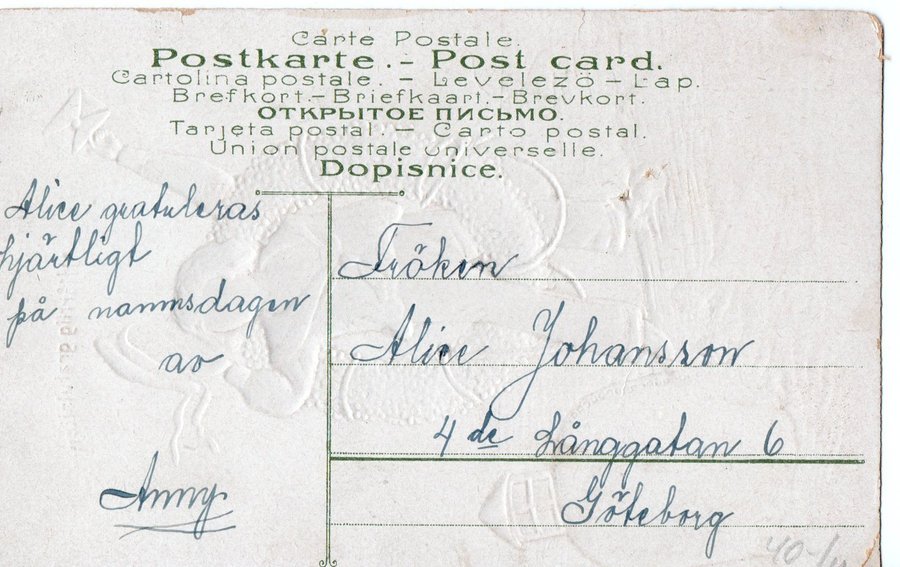 Carte Postale.
Postkarte. - Post card.
Cartolina postale. - Levelezö - Lap.
Brefkort. - Briefkaart. - Brevkort.
ОТКРЫТОЕ ПИСЬМО.
Tarjeta postal. - Carto postal.
Union postale universelle.
Dopisnice.
Alice gratuleras
hjärtligt
på namnsdagen
av
Anny
Fröken
Alice Johansson
4 de Långgatan 6
Göteborg